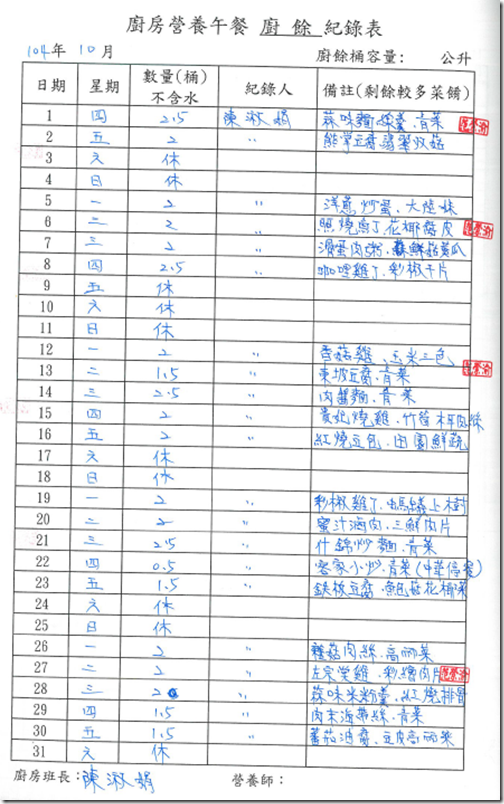 廚房營養午餐 廚餘 紀錄表
104年 10月 廚餘桶容量： 公升
日期 星期 數量(桶)不含水 紀錄人 備註(剩餘較多菜餚)
1 四 2.5 陳淑娟 青菜
2 五 2 〃 熊掌豆腐
3 六 休
4 日 休
5 一 2 〃 洋蔥炒蛋、大陸妹
6 二 2 〃 照燒雞丁、花椰
7 三 2 〃 滑蛋肉粥
8 四 2.5 〃 咖哩雞丁、彩椒干片
9 五 休
10 六 休
11 日 休
12 一 2 〃 香菇雞、玉米三色
13 二 1.5 〃 東坡豆腐、青菜
14 三 2.5 〃 肉醬麵、青菜
15 四 2 〃 貴妃燒雞、竹筍木耳肉絲
16 五 2 〃 紅燒豆包、田園鮮蔬
17 六 休
18 日 休
19 一 2 〃 彩椒雞丁、螞蟻上樹
20 二 2 〃 蜜汁滷肉、三鮮肉片
21 三 2.5 〃 什錦炒麵、青菜
22 四 0.5 〃 客家小炒、青菜
23 五 1.5 〃 鐵板豆腐、鮑菇花椰菜
24 六 休
25 日 休
26 一 2 〃 菇肉絲、高麗菜
27 二 2 〃 左宗棠雞、彩繪肉片
28 三 2 〃 蒜味米粉羹、紅燒排骨
29 四 1.5 〃 肉末海帶絲、青菜
30 五 1.5 〃 豆皮高麗菜
31 六 休
廚房班長：陳淑娟 營養師：